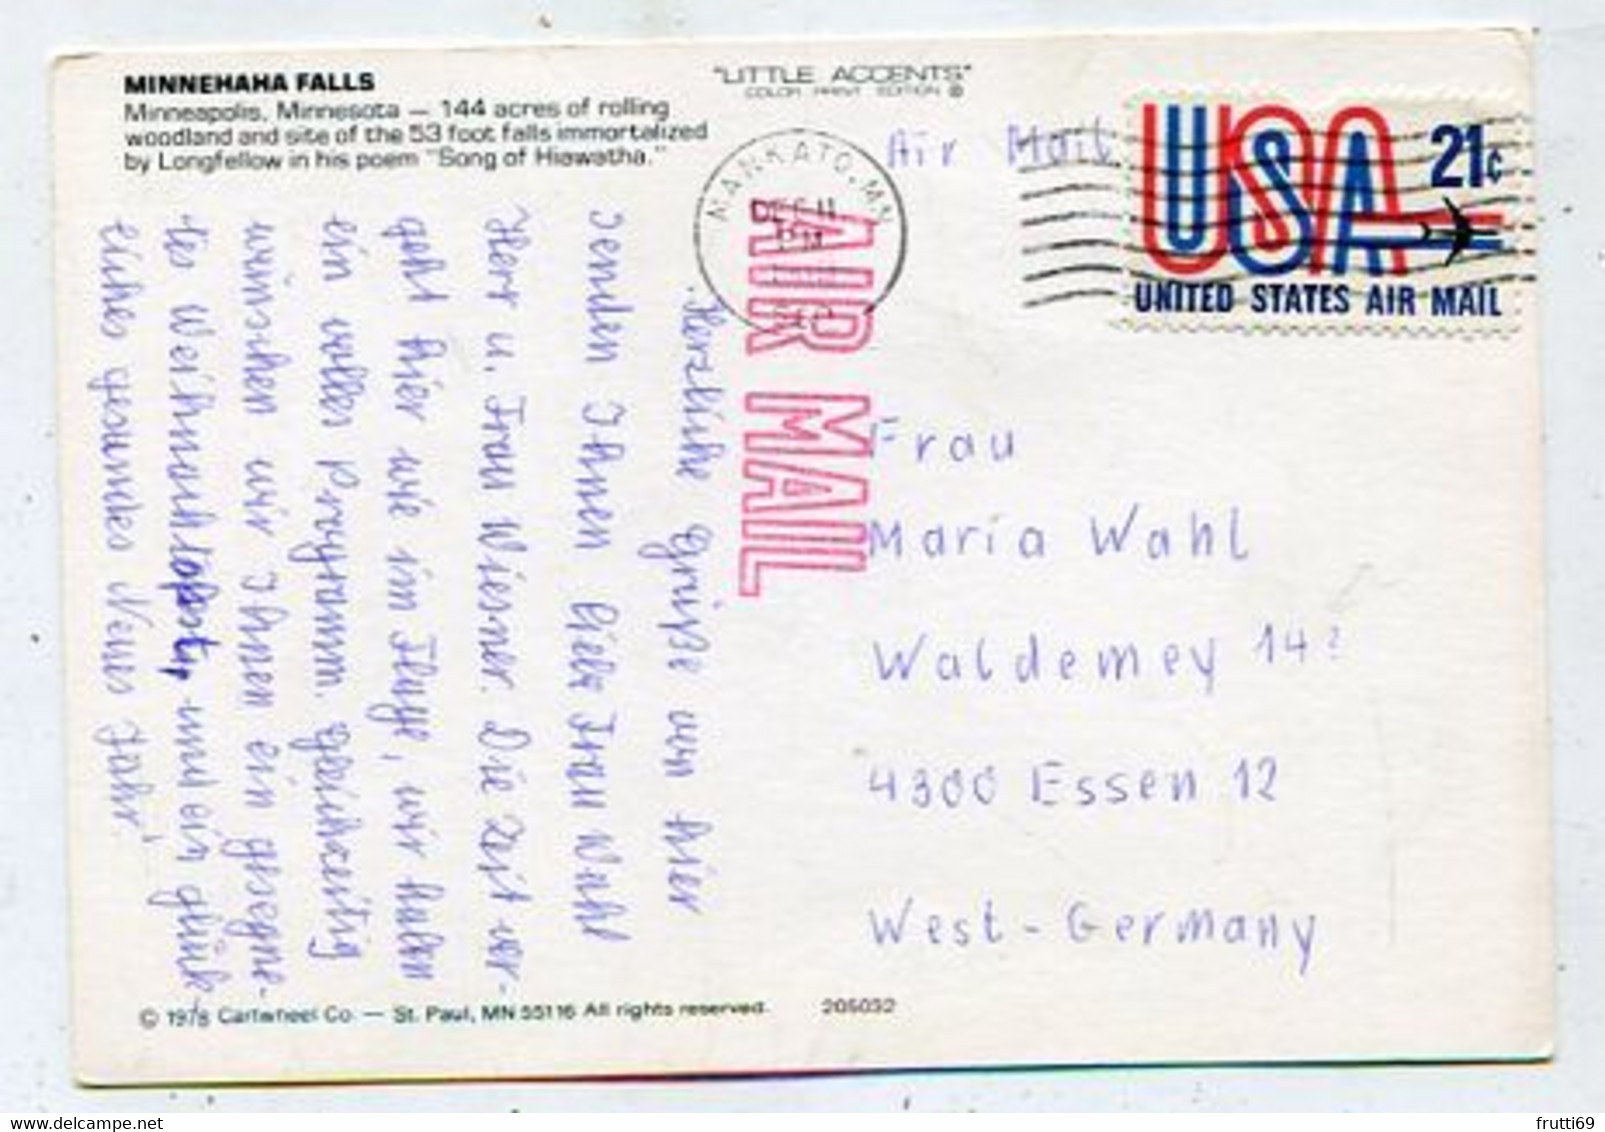 MINNEHAHA FALLS
Minneapolis, Minnesota — 144 acres of rolling
woodland and site of the 53 foot falls immortalized
by Longfellow in his poem "Song of Hiawatha."
"LITTLE ACCENTS"
COLOR PRINT EDITION ®
MANKATO, MN
DEC 11
PM
Air Mail
AIR MAIL
USA 21c
UNITED STATES AIR MAIL
Herzliche Grüße von hier
senden Ihnen liebe Frau Wahl
Herr u. Frau Wiesner. Die Zeit ver-
geht hier wie im Fluge, wir haben
ein volles Programm. Gleichzeitig
wünschen wir Ihnen ein gesegne-
tes Weihnachtsfest, und ein glück-
liches gesundes Neues Jahr!
Frau
Maria Wahl
Waldemey 14?
4300 Essen 12
West-Germany
© 1978 Cartwheel Co. — St. Paul, MN 55116 All rights reserved.
205032
frutti69